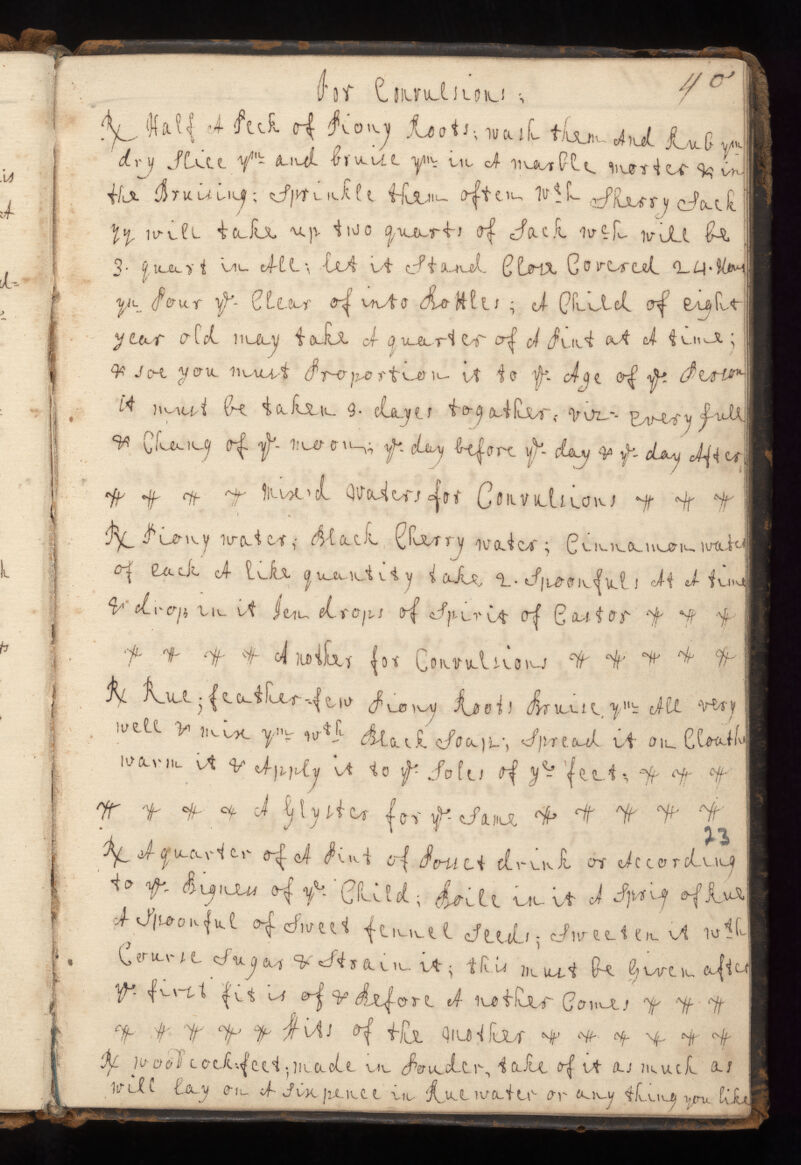 For Convulsions;
40
℞ Half A Peck of Piony Roots; wash them And Rub ym
dry Slice ym and bruise ym in A marble morter & in
the Bruising; Sprinkle them often wth Sherry Sack
yy will take up two quarts of Sack wch will be
3. quart in All; let it Stand Close Covered 24. Hours
yn Pour ye Clear of into Bottles; A Child of eight
year old may take A quarter of A Pint at A time;
& soe you must Proportion it to ye Age of ye Person
it must be taken 3. dayes togather, viz- Every full
& Chang of ye moon; ye day before ye day & ye day After
mixed waters for Convulsions
℞ Piony water; Black Cherry water; Cinnamon water
of each A like quantity take 2. Spoonfuls At A time
& drop in it ten drops of Spirit of Castor
A nother for Convulsions
℞ Rue; feather-few Piony Roots Bruise ym All very
well & mix ym wth Black Soap; Spread it on Cloath
warm it & Apply it to ye Soles of ye feet;
A Glyster for ye Same
23
℞ A quarter of A Pint of Posset drink or According
to ye Bigness of ye Child; Boile in it A Sprig of Rue
A Spoonful of Sweet fennel Seeds; Sweeten it wth
Course Sugar & Strain it; this must be Given after
ye first fit is of & Before A nother Comes
Fits of the mother
℞ woodcock-feet; made in Pouder, take of it as much as
will lay on A Six pence in Rue water or any thing you like